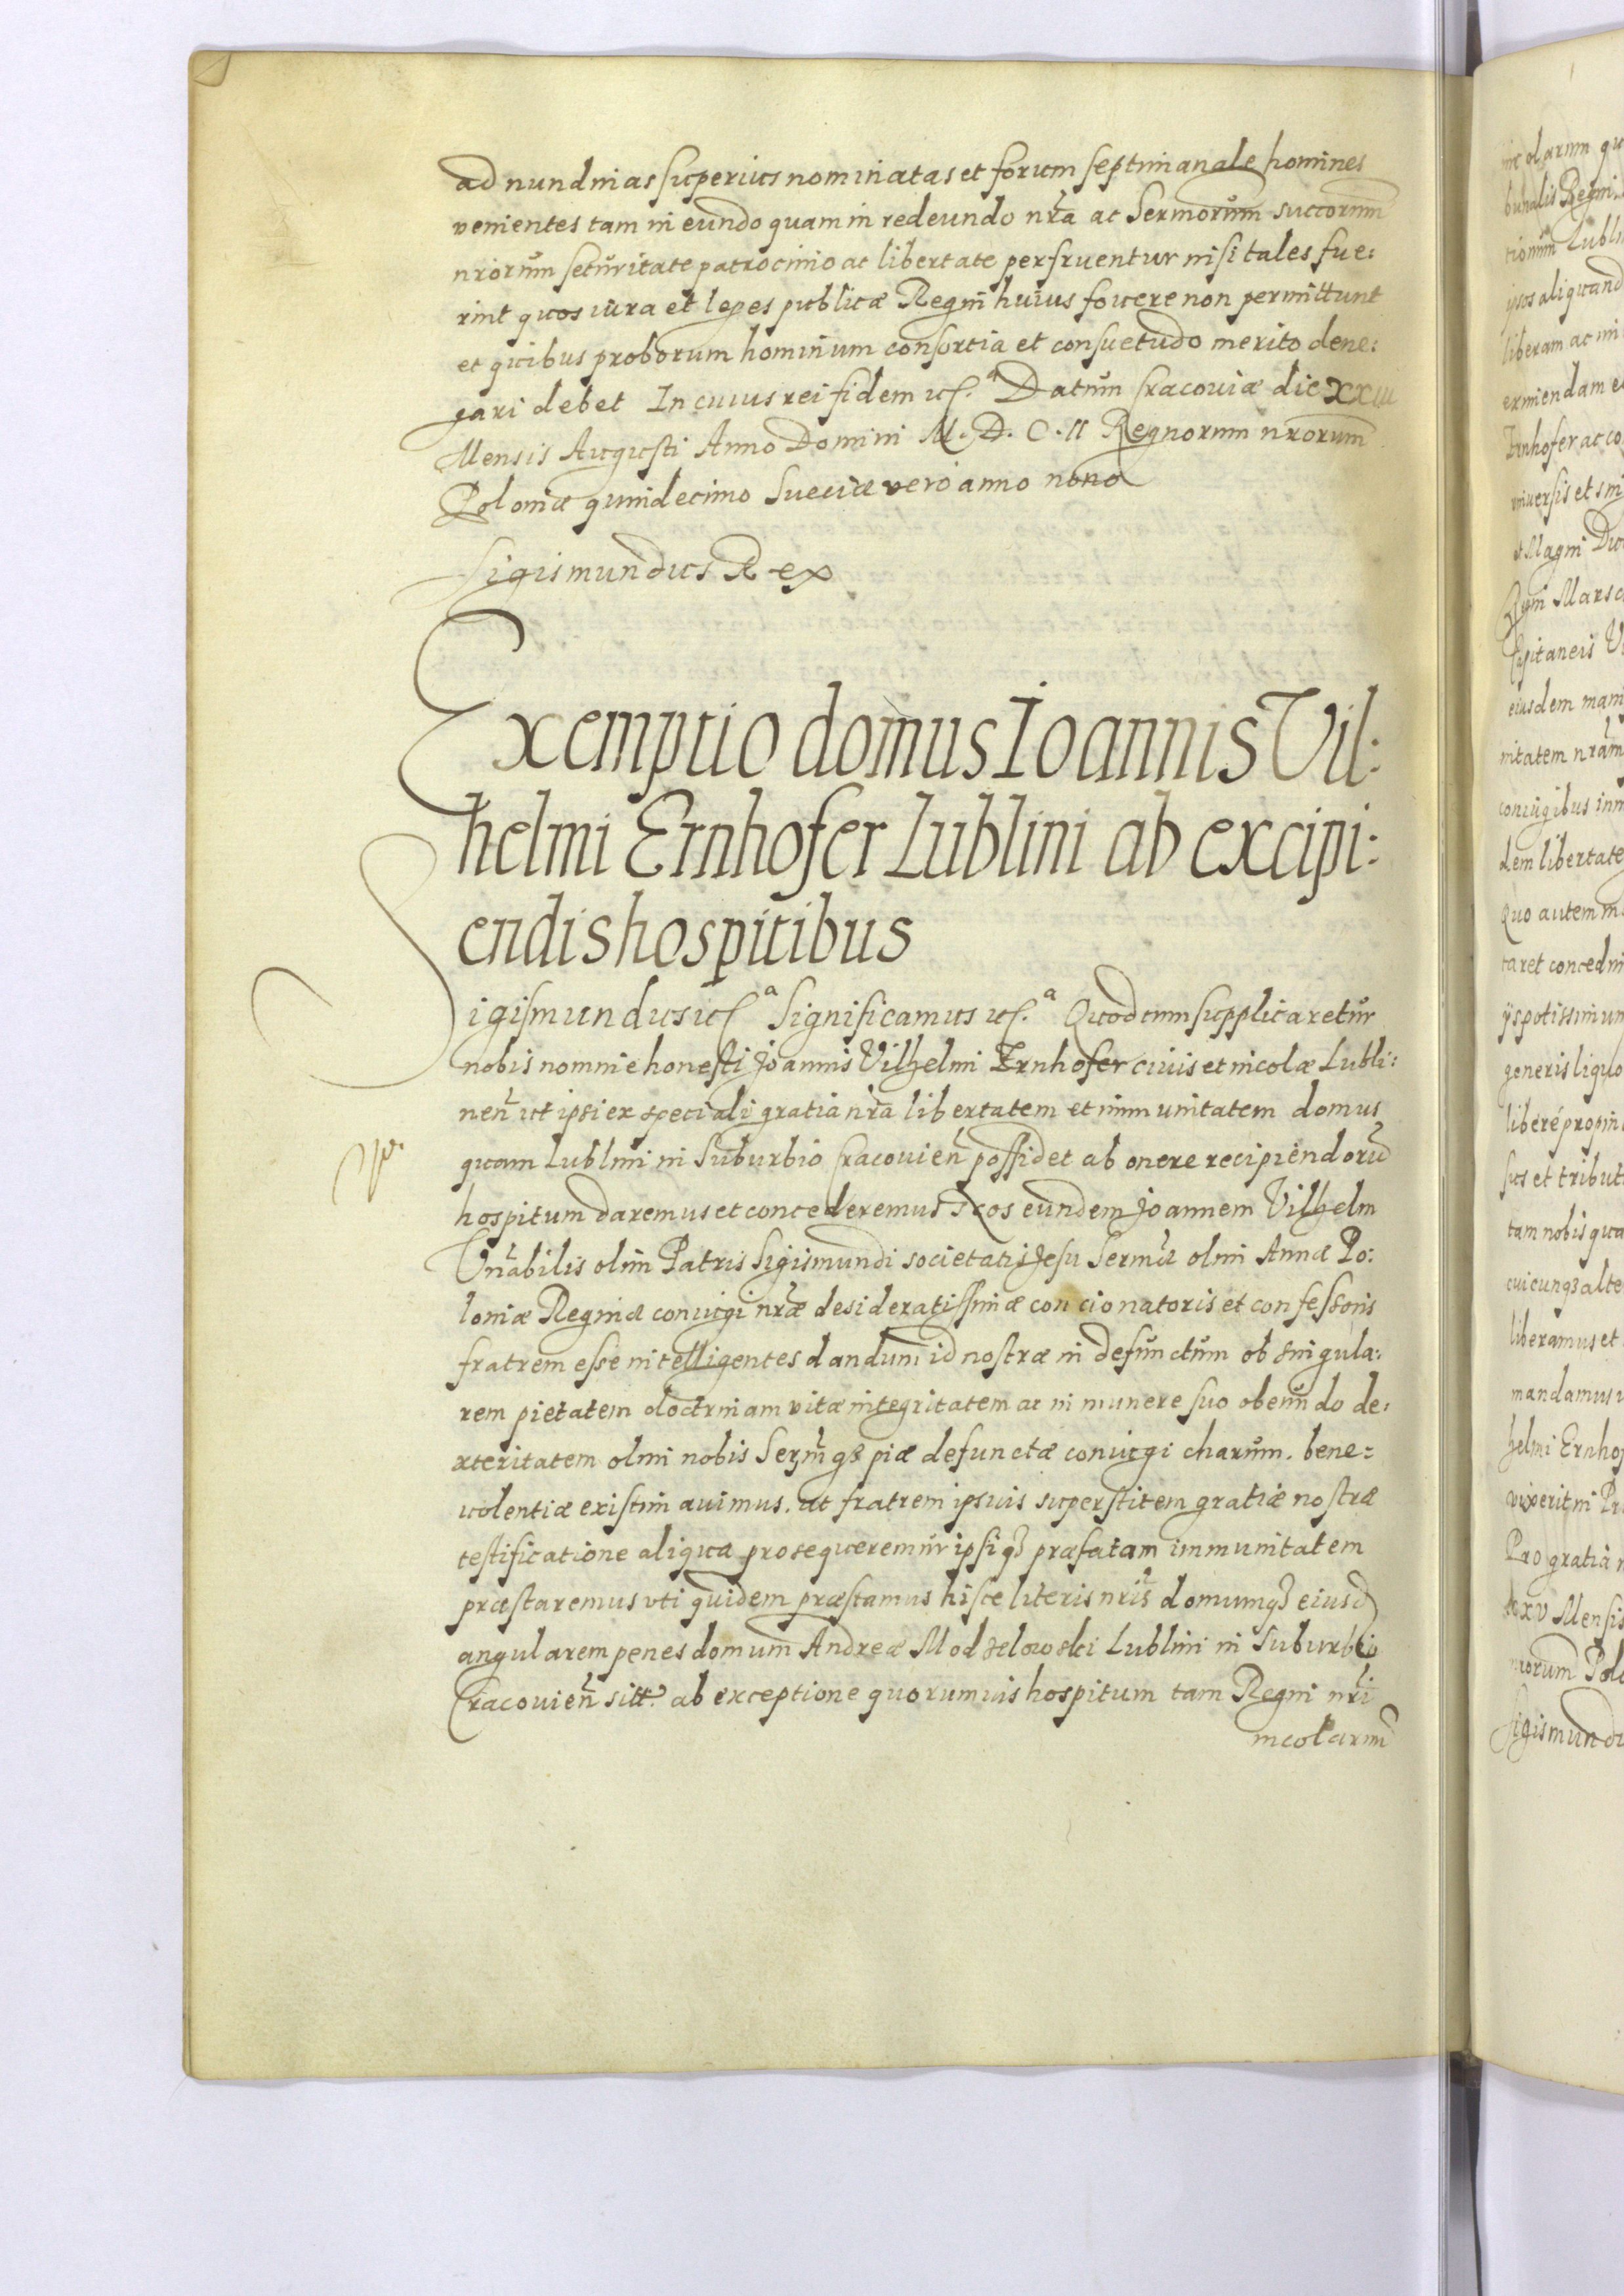 ad nundinas superius nominatas et forum septimanale homines
venientes tam in eundo quam in redeundo nr̃a ac Sermorum succorum
nrorum securitate patrocinio ac libertate perfruentur nisi tales fue:
rint quos iura et leges publicæ Regni huius fovere non permittunt
et quibus proborum hominum consortia et consuetudo merito dene:
gari debet In cuius rei fidem etc.ª Datum Cracoviæ die XXIII
Mensis Augusti Anno Domini M. D. C. II Regnorum nrorum
Poloniæ quindecimo Sueciæ vero anno nono
Sigismundus Rex
Exemptio domus Ioannis Vil:
helmi Ernhofer Lublini ab excipi:
endis hospitibus
Sigismundus etc.ª Significamus etc.ª Quod cum supplicaretur
nobis nomine honesti Joannis Vilhelmi Ernhofer civis et incolæ Lubli:
nen̄ ut ipsi ex speciali gratia nr̃a libertatem et immunitatem domus
quam Lublini in Suburbio Cracovien̄ possidet ab onere recipiendorū
hospitum daremus et concederemus Nos eundem Joannem Vilhelm
Vn̄abilis olim Patris Sigismundi societatis Jesu Sermæ olim Annæ Po:
loniæ Reginæ coniugi nr̃æ desideratissimæ concionatoris et confessoris
fratrem esse intelligentes dandum id nostræ in defunctum ob singula:
rem pietatem doctrinam vitæ integritatem ac in munere suo obeundo de:
xteritatem olim nobis Sermq3 piæ defunctæ coniugi charum. bene:
volentiæ existimavimus. ut fratrem ipsius superstitem gratiæ nostræ
testificatione aliqua prosequeremur ipsiq3 præfatam immunitatem
præstaremus uti quidem præstamus hisce literis nr̃is domumq3 eiusd
angularem penes domum Andreæ Modzelowski Lublini in Suburbio
Cracovien̄ sitt. ab exceptione quorumvis hospitum tam Regni nr̃i
incolarum